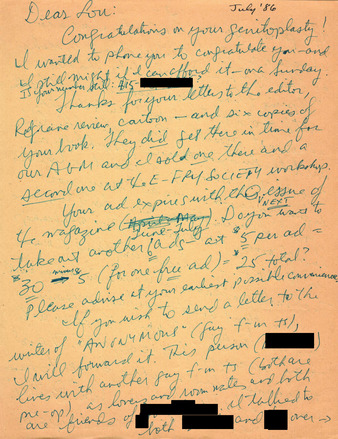 July '86
Dear Lou:
Congratulations on your genitoplasty!
I wanted to phone you to congratulate you—and
I still might if I can afford it—on a Sunday.
Is your number still: 415-
Thanks for your letters to the editor,
review, cartoon — and six copies of
your book. They did get here in time for
our AGM and I sold one there and a
second one at the E-FRY SOCIETY workshop.
Your ad expires with the issue of
NEXT
the magazine (April-May). Do you want to
June-July
take out another 6 ads — at $5 per ad =
$30 minus 5 (for one free ad) = $25 total?
Please advise at your earliest possible convenience.
If you wish to send a letter to the
writer of "ANONYMOUS" (gay f-m TS),
I will forward it. This person (
lives with another gay f-m TS (both are
pre-op) as lovers and room mates and both
are friends of I talked to
both and over →